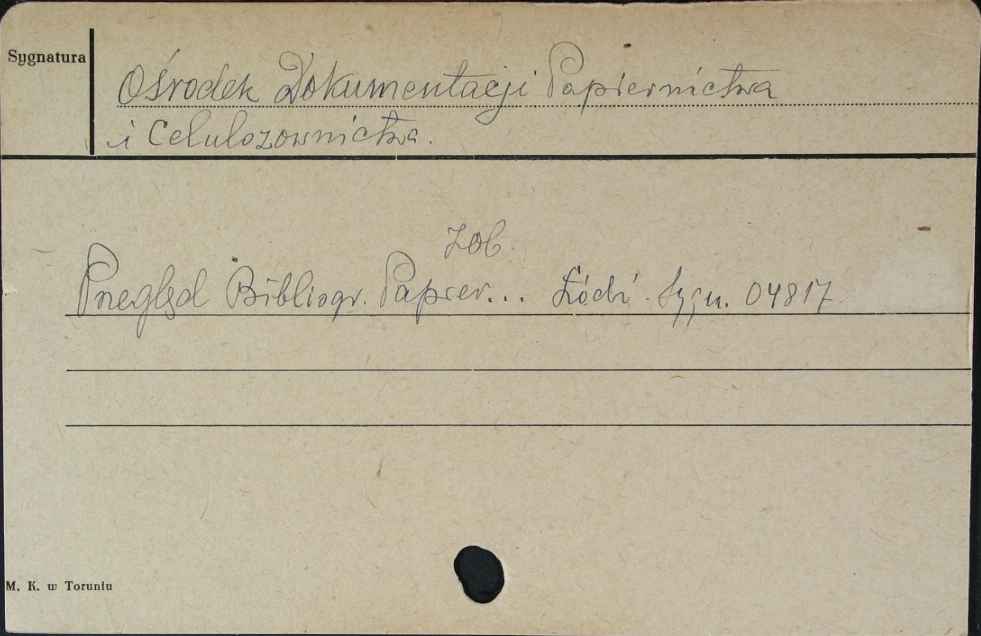 Sygnatura
Ośrodek Dokumentacji Papiernictwa
i Celulozownictwa.
zob.
Przegląd Bibliogr. Papier... Łódź. Sygn. 04817
M. K. w Toruniu